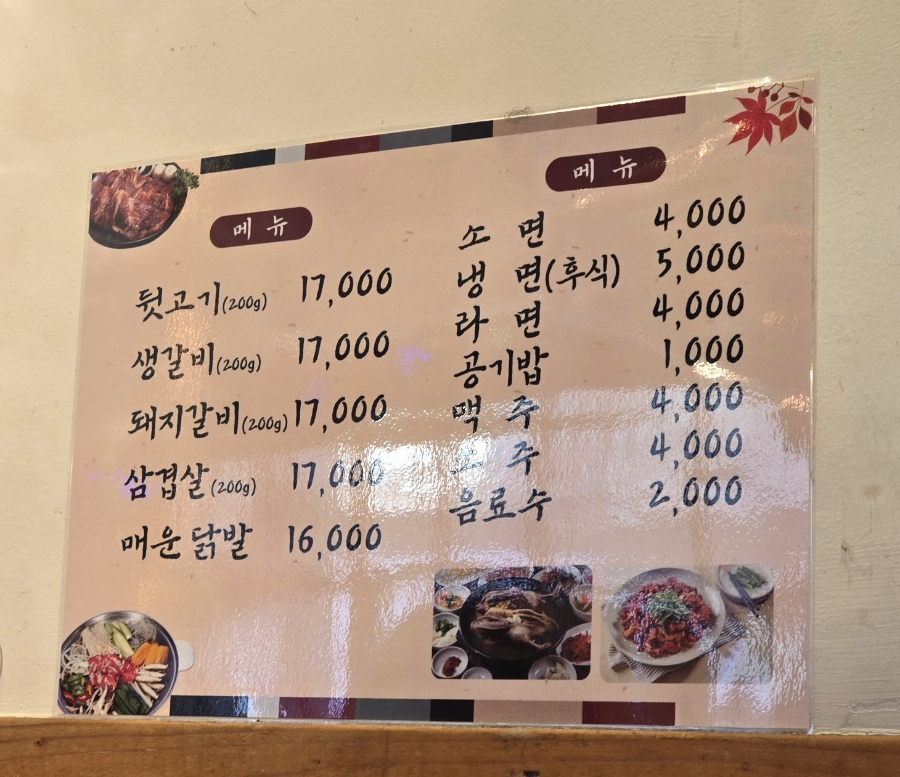 메뉴
뒷고기(200g) 17,000
생갈비(200g) 17,000
돼지갈비(200g) 17,000
삼겹살(200g) 17,000
매운 닭발 16,000
메뉴
소 면 4,000
냉 면(후식) 5,000
라 면 4,000
공기밥 1,000
맥 주 4,000
소 주 4,000
음료수 2,000